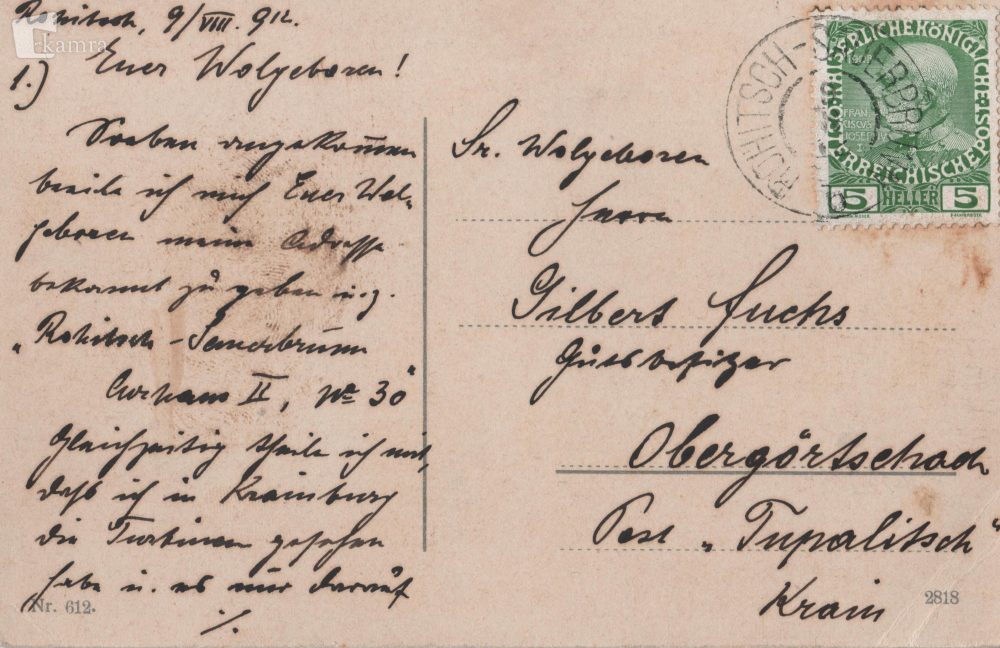 kamra
Rohitsch, 9/VIII. 912.
1.) Euer Wolgeboren!
Soeben angekom̅en
beeile ich mich Euer Wol-
geboren meine Adresse
bekannt zu geben u. z.
„Rohitsch-Sauerbrunn
Curhaus II, No 30"
Gleichzeitig theile ich mit,
daß ich in Krainburg
die Turbinen gesehen
habe u. es nur darauf
./.
Nr. 612.
Sr. Wolgeboren
Herrn
Gilbert Fuchs
Gutsbesitzer
Obergörtschach
Post „Tupalitsch"
Krain
2818
ROHITSCH-SAUERBRUNN
KAISERLICHE KÖNIGLICHE
ÖSTERREICHISCHE POST
1908
FRAN
CISCVS
IOSEPH
I
5 HELLER 5